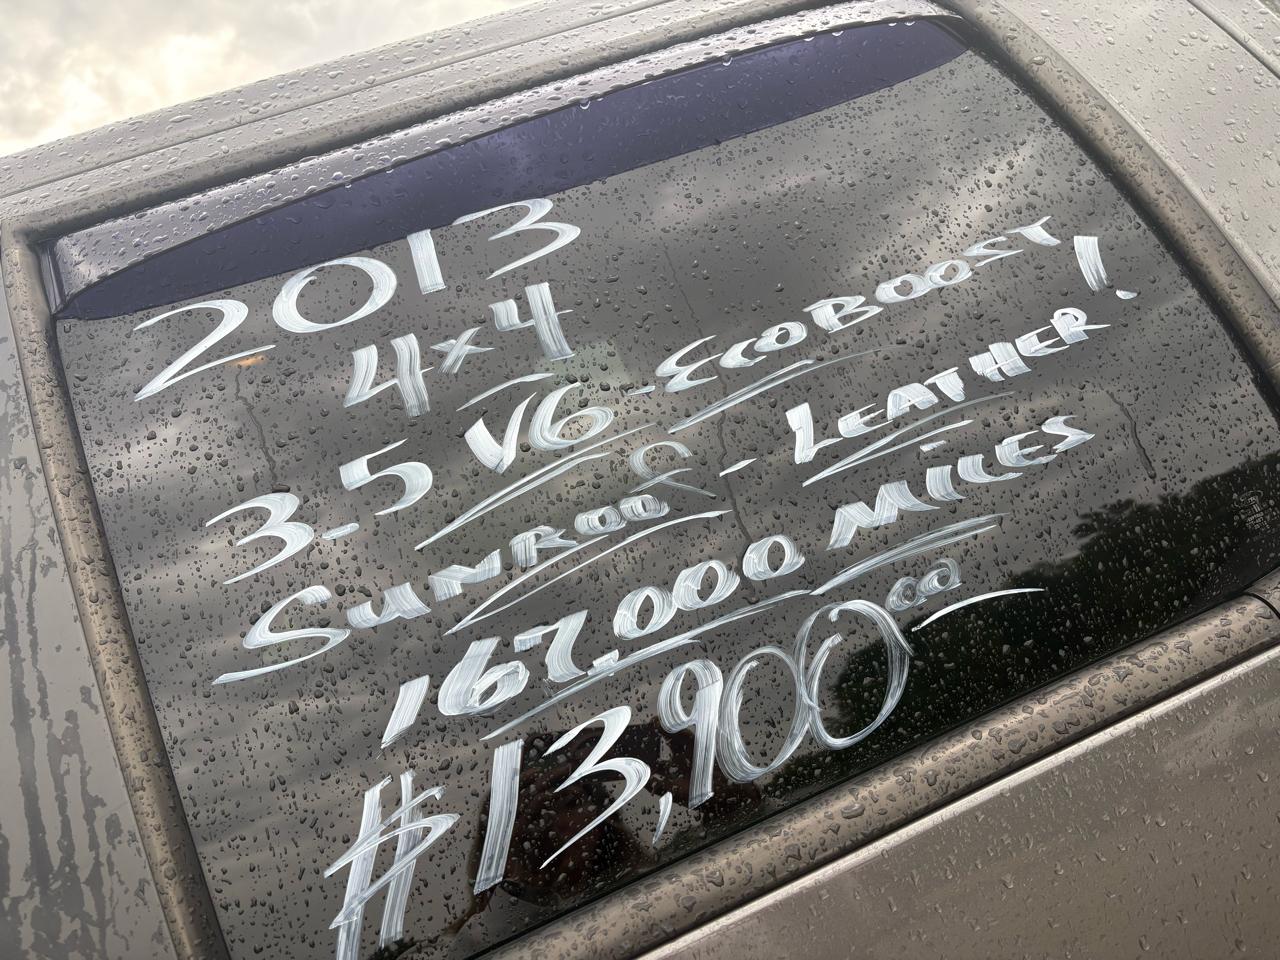 2013
4x4
3.5 V6 - ECOBOOST
SUNROOF - LEATHER!
167,000 MILES
$13,900.00